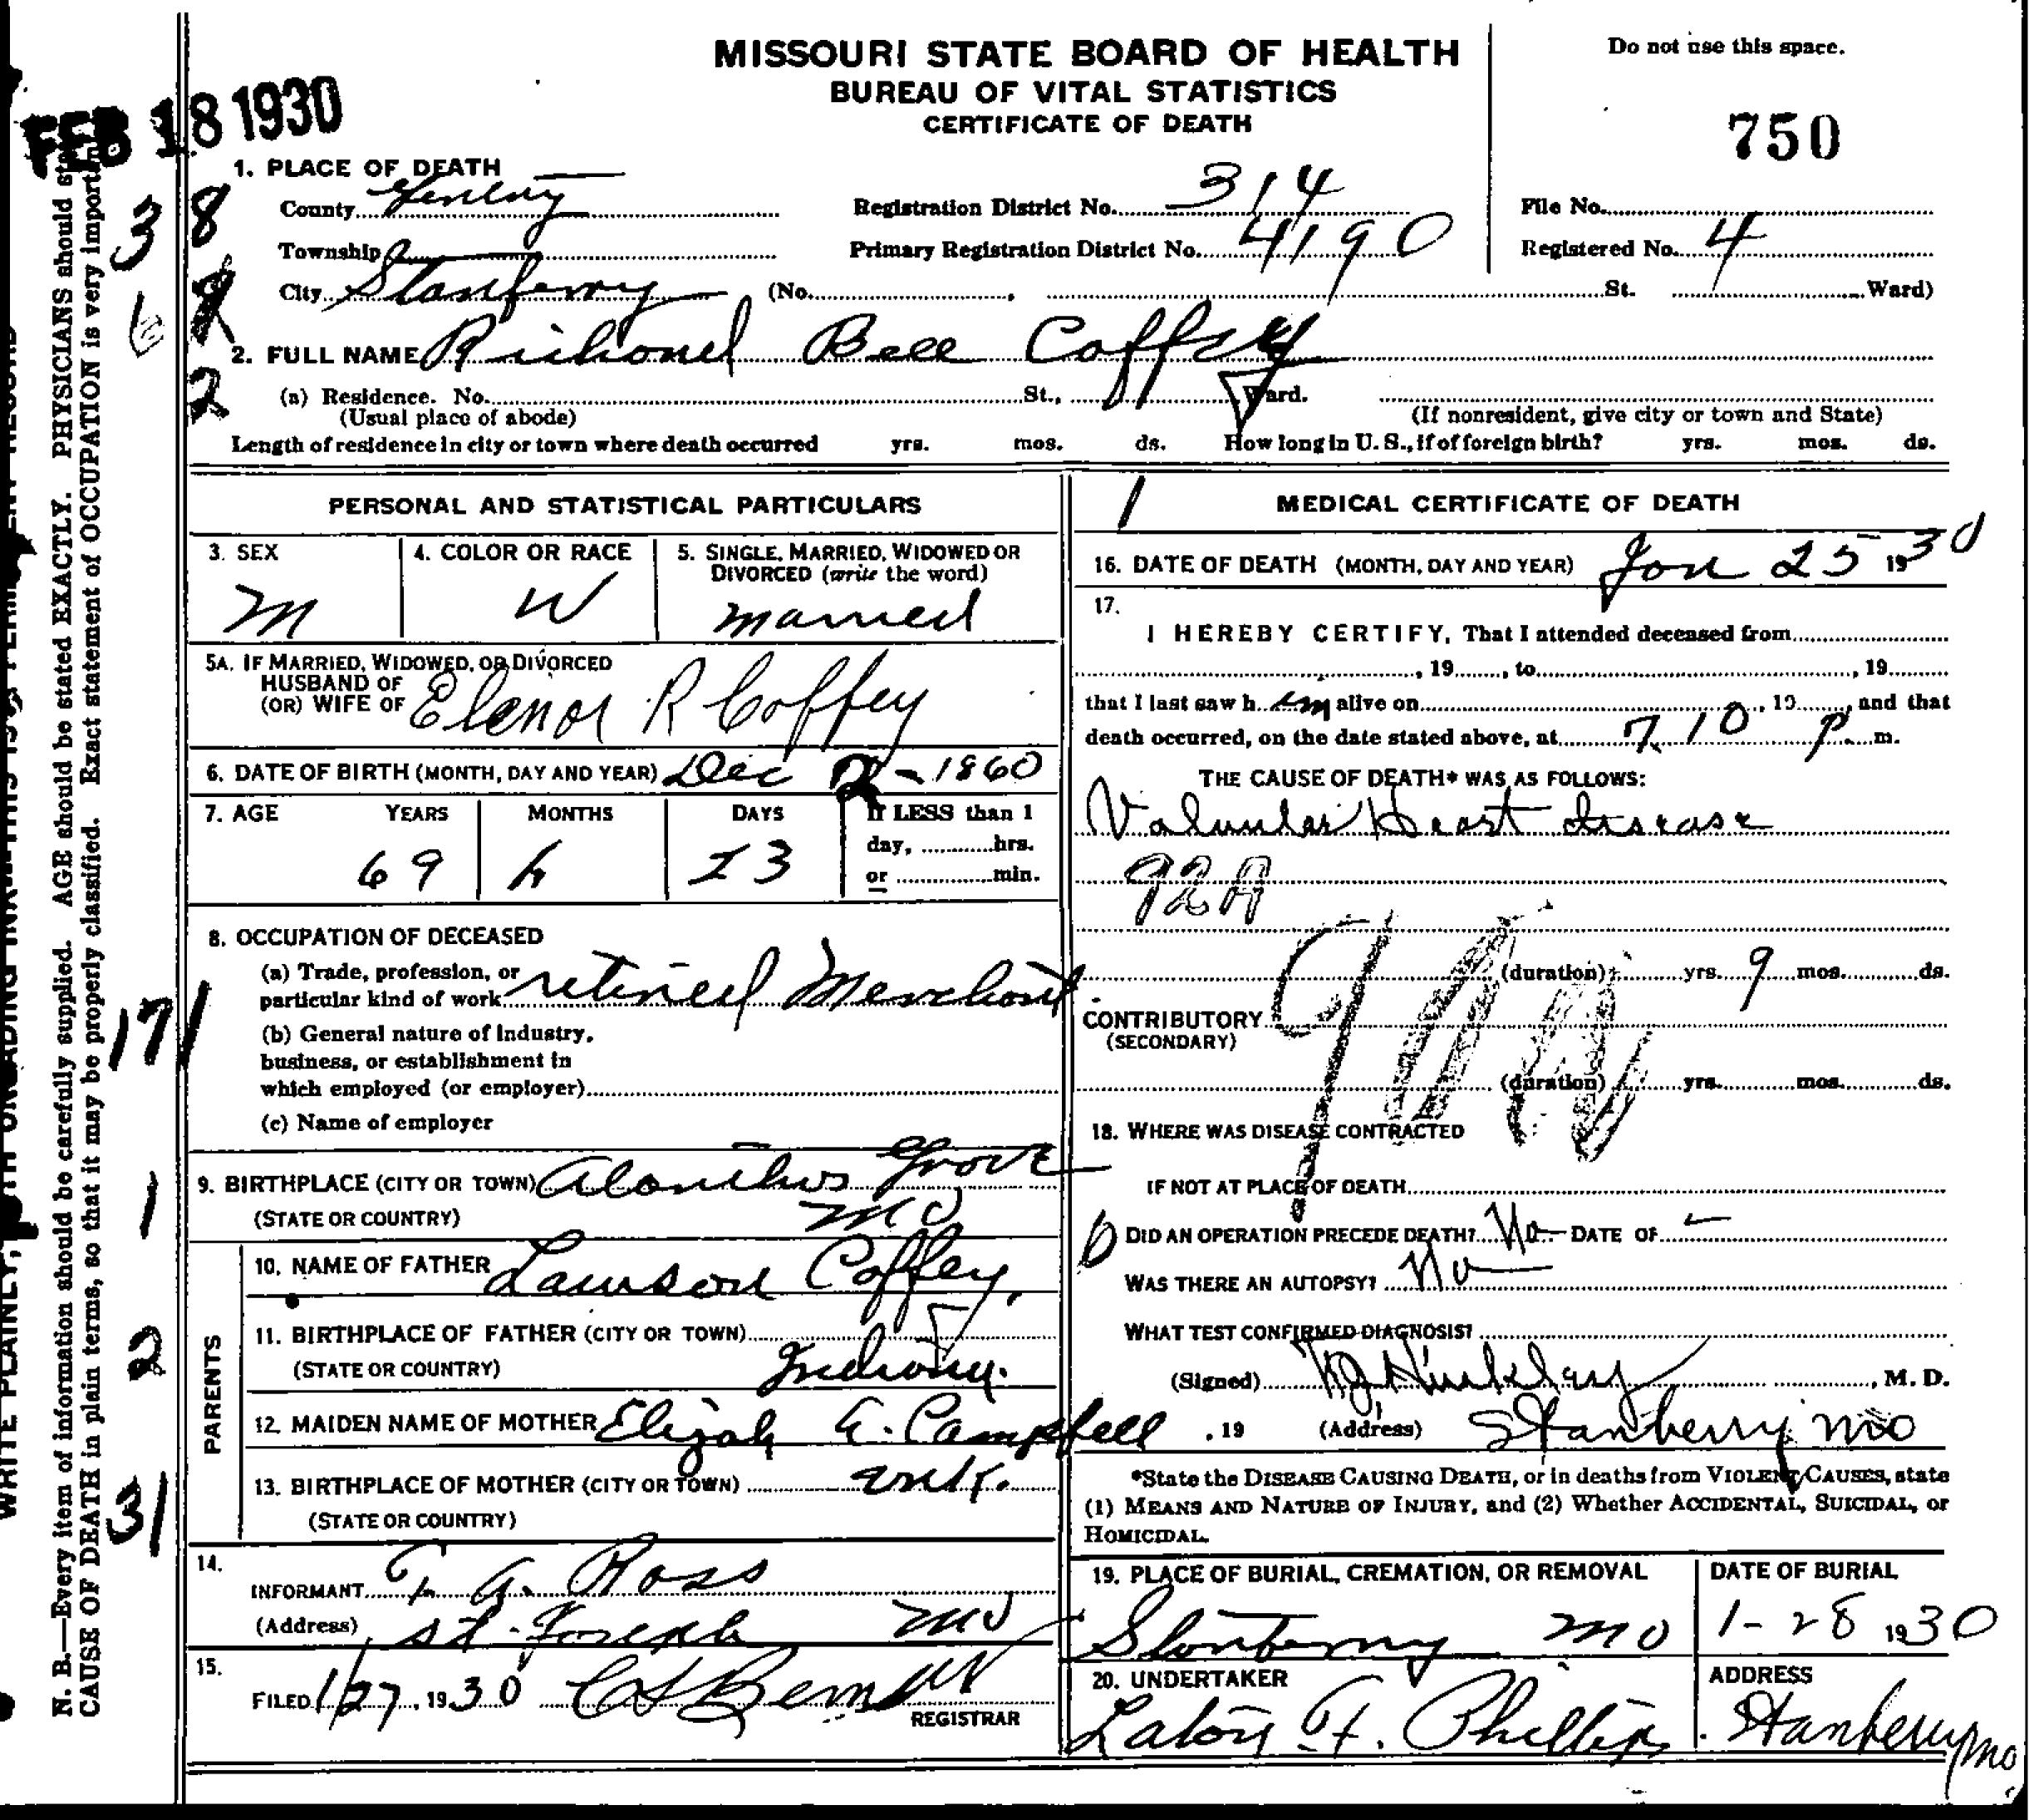 MISSOURI STATE BOARD OF HEALTH
BUREAU OF VITAL STATISTICS
CERTIFICATE OF DEATH
Do not use this space.
750
FEB 18 1930
1. PLACE OF DEATH
County Gentry
Township
City Stanberry (No. , St. Ward)
Registration District No. 314
Primary Registration District No. 4190
File No.
Registered No. 4
2. FULL NAME Bell Coffey
(a) Residence. No. St., Ward.
(Usual place of abode) (If nonresident, give city or town and State)
Length of residence in city or town where death occurred yrs. mos. ds. How long in U. S., if of foreign birth? yrs. mos. ds.
PERSONAL AND STATISTICAL PARTICULARS
3. SEX
M
4. COLOR OR RACE
W
5. SINGLE, MARRIED, WIDOWED OR
DIVORCED (write the word)
married
5A. IF MARRIED, WIDOWED, OR DIVORCED
HUSBAND OF
(OR) WIFE OF Elenor R Coffey
6. DATE OF BIRTH (MONTH, DAY AND YEAR) Dec 2 - 1860
7. AGE YEARS MONTHS DAYS If LESS than 1
day, hrs.
or min.
69 23
8. OCCUPATION OF DECEASED
(a) Trade, profession, or
particular kind of work retired Merchant
(b) General nature of industry,
business, or establishment in
which employed (or employer)
(c) Name of employer
9. BIRTHPLACE (CITY OR TOWN) Alanthus Grove
(STATE OR COUNTRY) Mo
PARENTS
10. NAME OF FATHER Lawson Coffey,
11. BIRTHPLACE OF FATHER (CITY OR TOWN)
(STATE OR COUNTRY) Indiana.
12. MAIDEN NAME OF MOTHER Elizah E. Campbell
13. BIRTHPLACE OF MOTHER (CITY OR TOWN) unk.
(STATE OR COUNTRY)
14.
INFORMANT Ross
(Address) St. Joseph Mo
15.
FILED 1/27, 1930
REGISTRAR
MEDICAL CERTIFICATE OF DEATH
16. DATE OF DEATH (MONTH, DAY AND YEAR) Jan 25 1930
17.
I HEREBY CERTIFY, That I attended deceased from
, 19 , to , 19
that I last saw h im alive on , 19 , and that
death occurred, on the date stated above, at 7.10 P. m.
THE CAUSE OF DEATH* WAS AS FOLLOWS:
Valvular Heart disease
92A
(duration) yrs. 9 mos. ds.
CONTRIBUTORY
(SECONDARY)
(duration) yrs. mos. ds.
18. WHERE WAS DISEASE CONTRACTED
IF NOT AT PLACE OF DEATH
DID AN OPERATION PRECEDE DEATH? No DATE OF
WAS THERE AN AUTOPSY? No
WHAT TEST CONFIRMED DIAGNOSIS?
(Signed) , M. D.
, 19 (Address) Stanberry Mo
*State the DISEASE CAUSING DEATH, or in deaths from VIOLENT CAUSES, state
(1) MEANS AND NATURE OF INJURY, and (2) Whether ACCIDENTAL, SUICIDAL, or
HOMICIDAL.
19. PLACE OF BURIAL, CREMATION, OR REMOVAL
Stanberry Mo
DATE OF BURIAL
1-28 1930
20. UNDERTAKER
F. Phillips
ADDRESS
Stanberry Mo
N. B.—Every item of information should be carefully supplied. AGE should be stated EXACTLY. PHYSICIANS should
CAUSE OF DEATH in plain terms, so that it may be properly classified. Exact statement of OCCUPATION is very
WRITE PLAINLY,
38
6
2
171
1
2
31